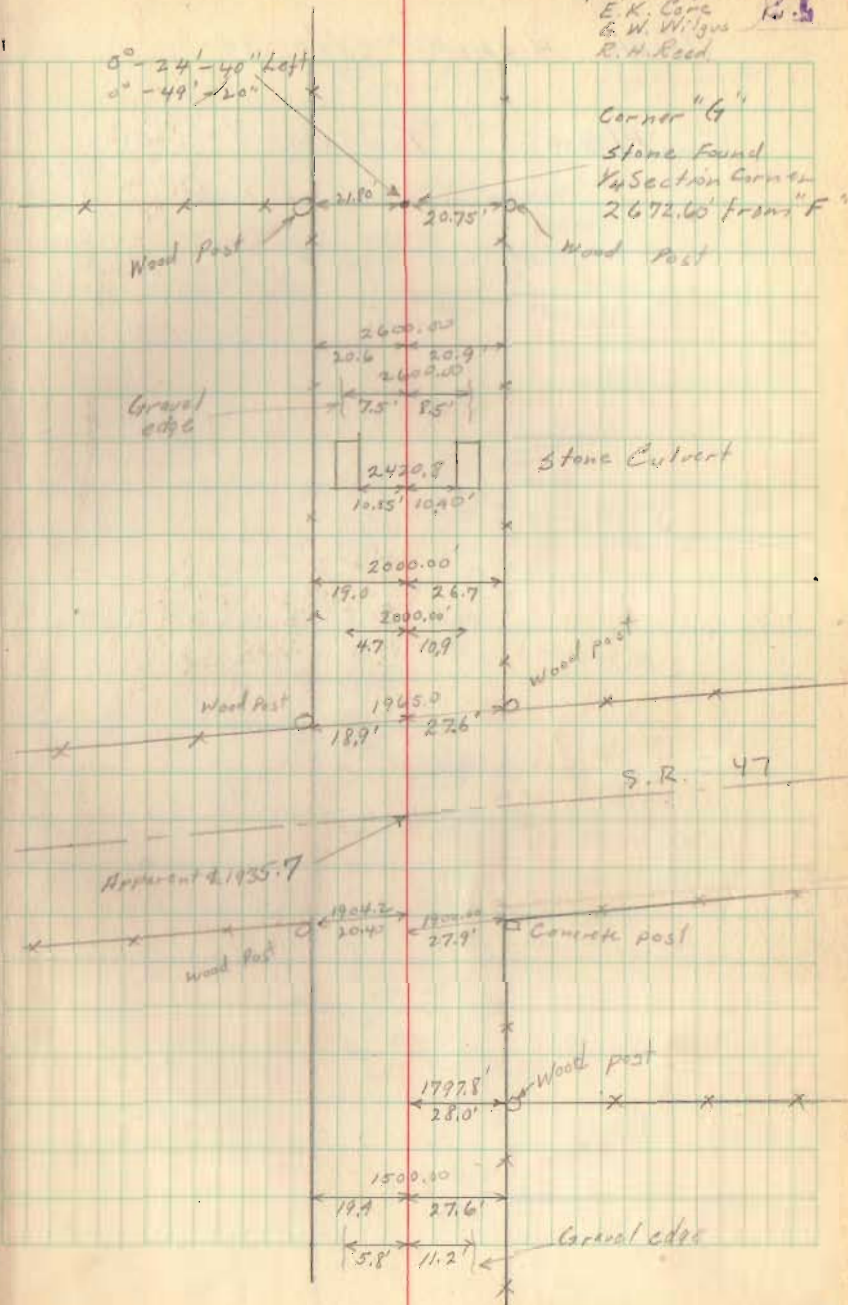 E. K. Core
G. W. Wilgus
R. H. Reed
0° - 24' - 40" Left
0° - 49' - 20"
Corner "G"
Stone Found
1/4 Section Corner
2672.60' from "F"
21.80'
20.75'
Wood Post
Wood Post
2600.00
20.6
20.9'
2600.00
7.5'
8.5'
Gravel
edge
2420.8
10.85'
10.40'
Stone Culvert
2000.00'
19.0
26.7
2000.00'
4.7
10.9
Wood post
Wood Post
1965.0
18.9'
27.6'
S.R. 47
Apparent ℄ 1935.7
1904.2
20.40
1900.00
27.9'
Concrete post
Wood Post
1797.8'
28.0'
Wood post
1500.00
19.4
27.6'
5.8'
11.2'
Gravel edge